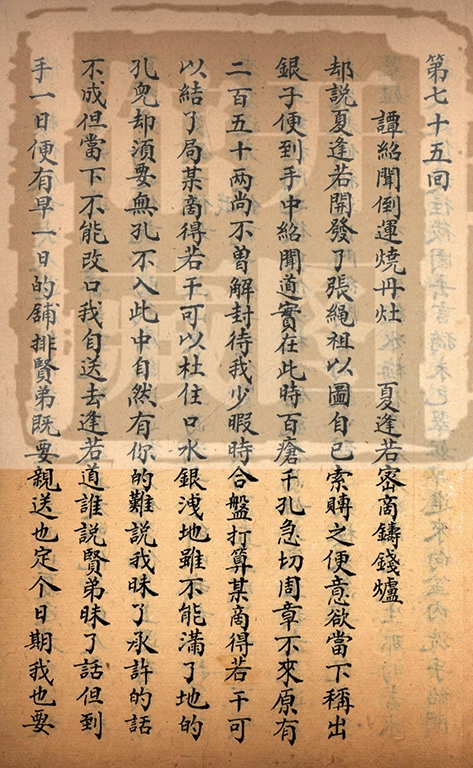 第七十五回
譚紹聞倒運燒丹灶 夏逢若密商鑄錢爐
却說夏逢若開發了張繩祖以圖自己索賻之便意欲當下稱出
銀子便到手中紹聞道實在此時百瘡千孔急切周章不來原有
二百五十两尚不曽解封待我少暇時合盤打算某商得若干可
以結了局某商得若干可以杜住口水銀洩地雖不能滿了地的
孔皃却須要無孔不入此中自然有你的難說我昧了承許的話
不成但當下不能改口我自送去逢若道誰說賢弟昧了話但到
手一日便有早一日的舖排賢弟既要親送也定个日期我也要